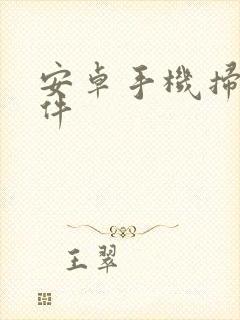 安卓手機掃
件
王翠